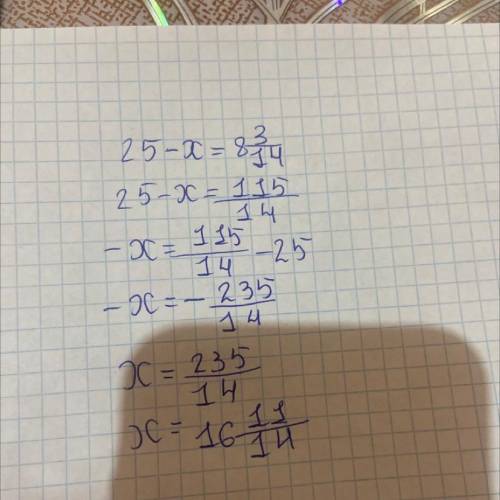 25-x=8 3/14
25-x=115/14
-x=115/14-25
-x=-235/14
x=235/14
x=16 11/14